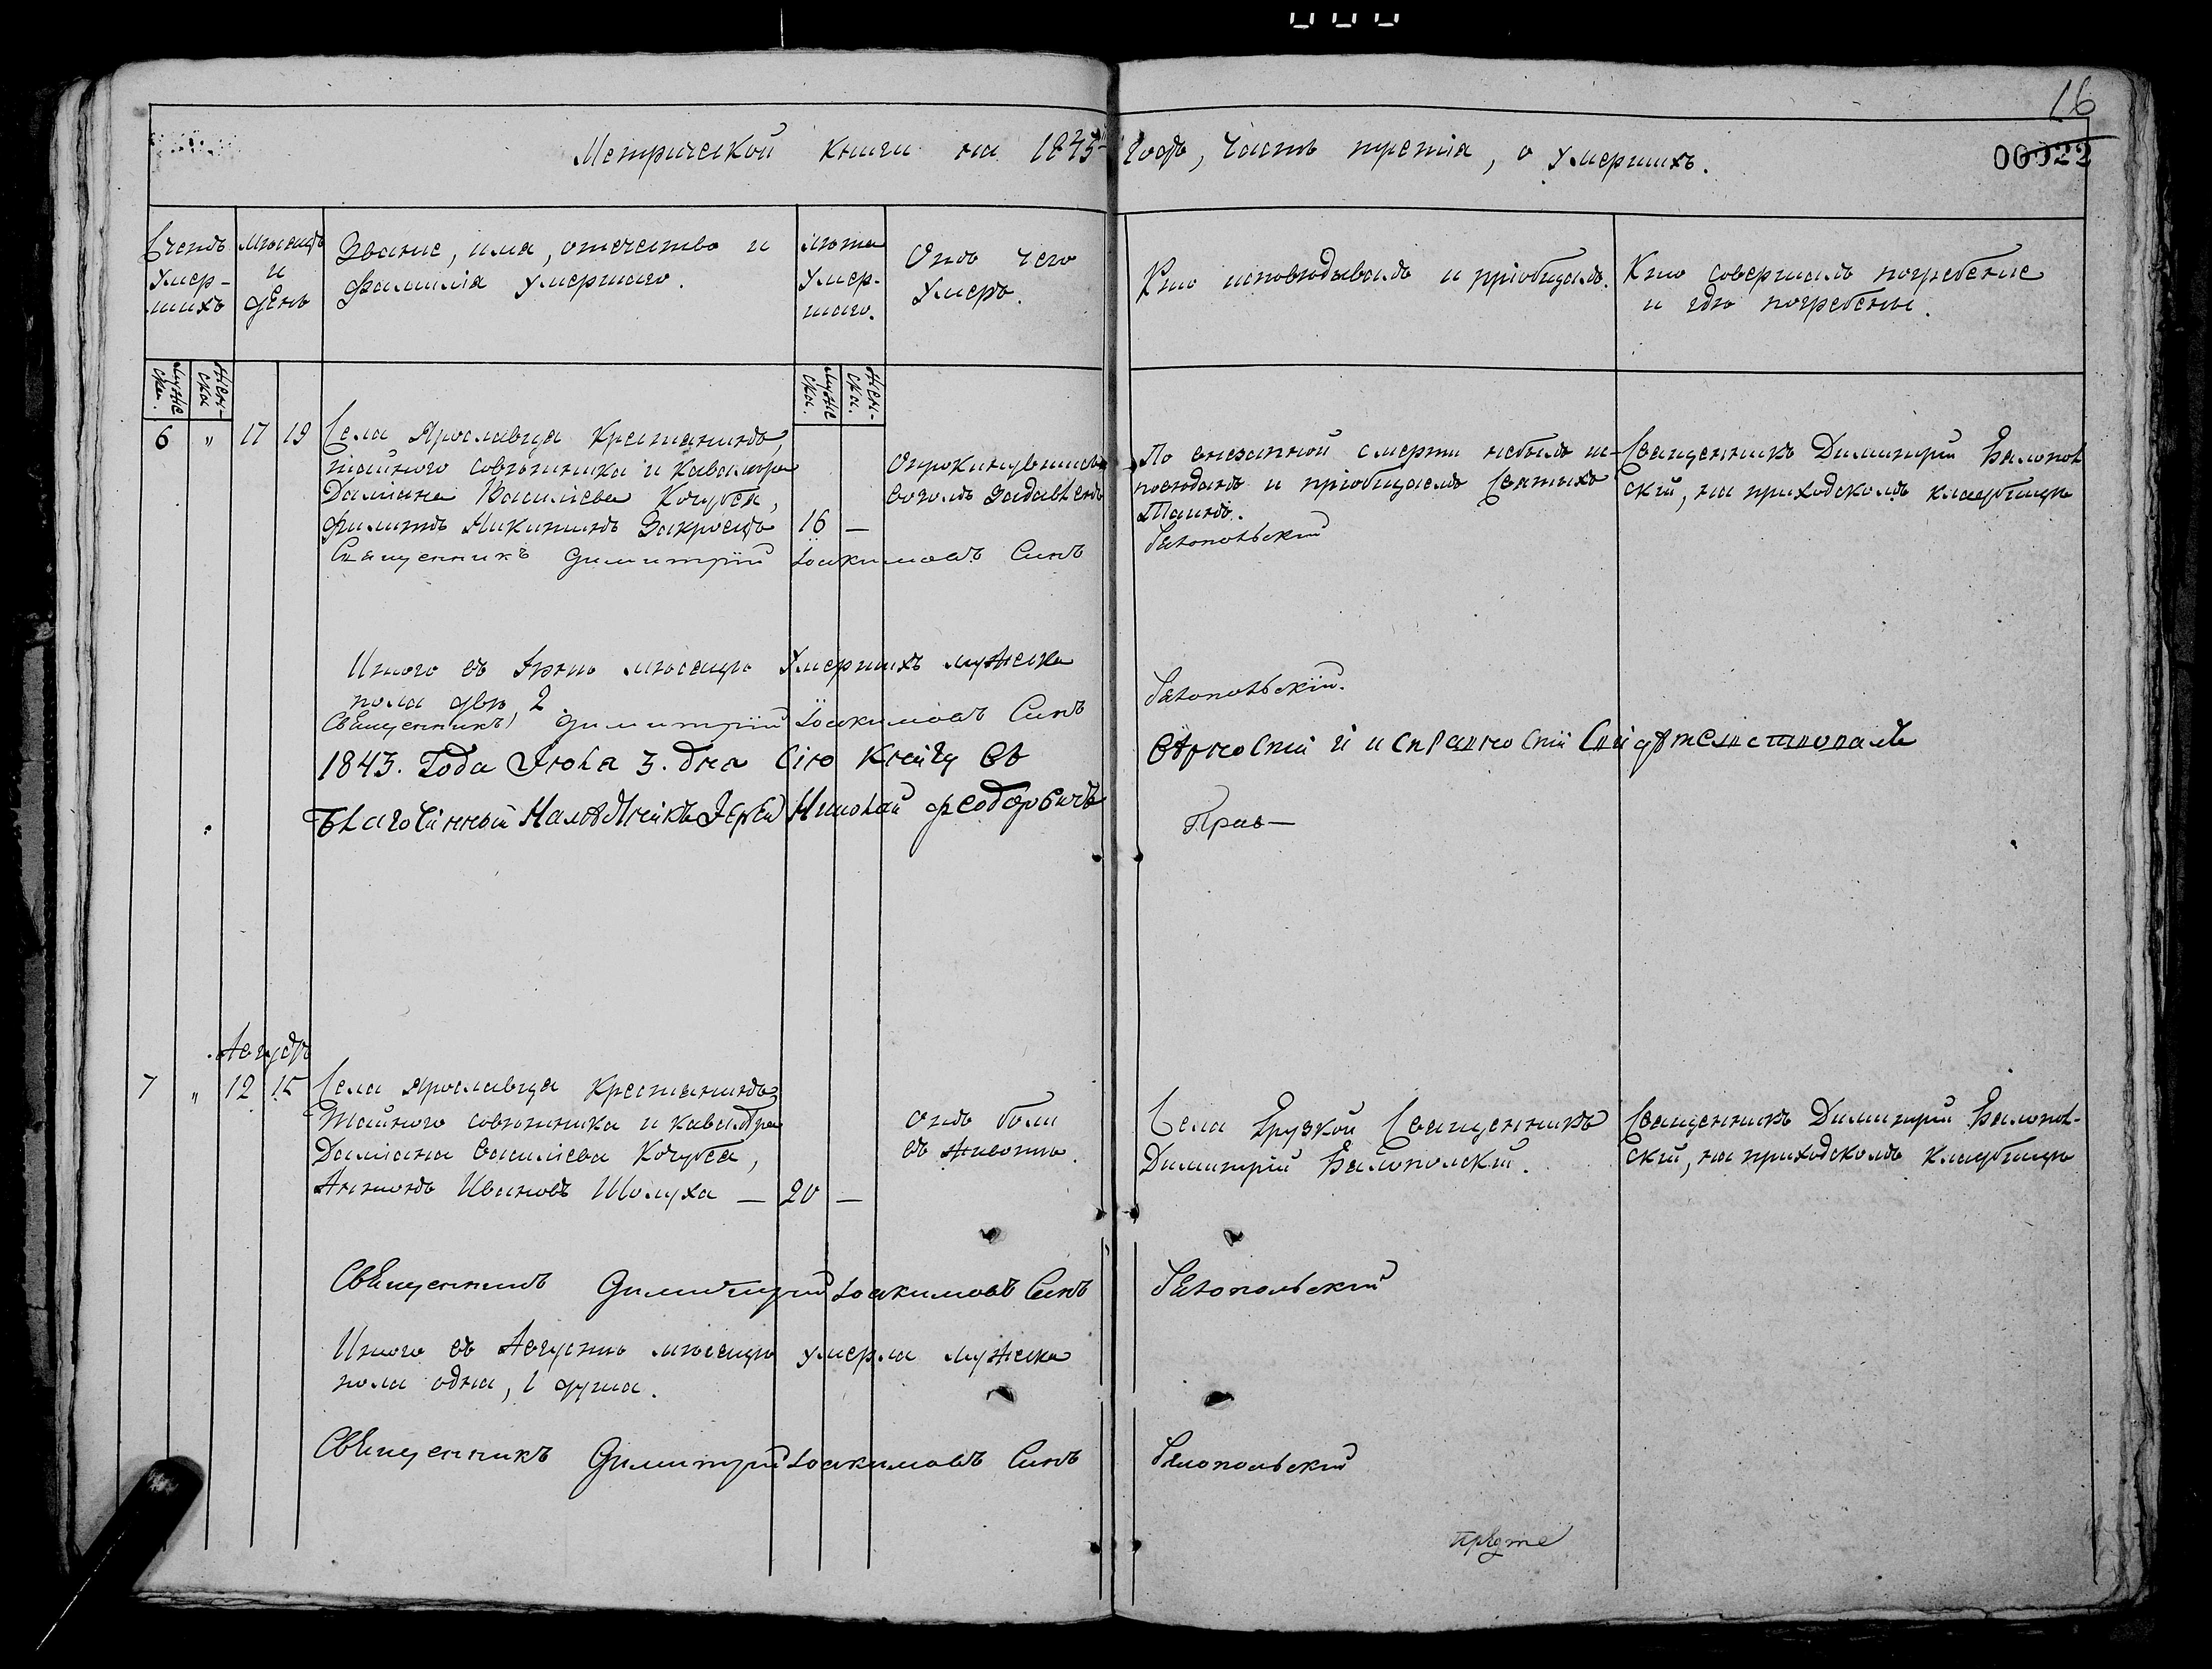 16
Метрической книги на 1843й годъ, часть третія, о умершихъ.
00022
Счетъ умер-шихъ
Мѣсяцъ и день
Званіе, имя, отечество и фамилія умершаго.
Лѣта умер-шаго.
Отъ чего умеръ.
Кто исповѣдывалъ и пріобщалъ.
Кто совершалъ погребеніе и гдѣ погребены.
муже ска.
жен-ска
муже ска.
жен-ска.
6 " 17 19 Села Ярославца крестьянинъ,
тайного совѣтника и кавалера
Даміана Василіева Кочубея,
Филипъ Никитинъ Закроецъ 16 —
опрокинувшись
возомъ задавленъ
По внезапной смерти небылъ ис-
повѣданъ и пріобщаемъ Святыхъ
Таинъ.
Священникъ Димитрій Бѣлополь
скій, на приходскомъ кладбищѣ
Священникъ Димитрій Іоакимовъ Синъ Бѣлопольскій
Итого въ Іюнѣ мѣсяцѣ умершихъ мужеска
пола двѣ 2
Священникъ Димитрій Іоакимовъ Синъ Бѣлопольскій.
1843. Года Іюля 3. дня Сію Книгу въ вѣрности и исправности Свидѣтелствовалъ
Благочинный Намѣстникъ Іерей Николай Федоровичъ Прав—
Августъ
7 " 12 15 Села Ярославца крестьянинъ
тайного совѣтника и кавалера
Даміана Василіева Кочубея,
Антонъ Ивановъ Шолуха — 20 —
отъ боли
въ животѣ.
Села Грузкой Священникъ
Димитрій Бѣлополскій.
Священникъ Димитрій Бѣлополь-
скій, на приходскомъ кладбищѣ
Священникъ Димитрій Іоакимовъ Синъ Бѣлопольскій
Итого въ Августѣ мѣсяцѣ умерла мужеска
пола одна, 1 душа.
Священникъ Димитрій Іоакимовъ Синъ Бѣлопольскій